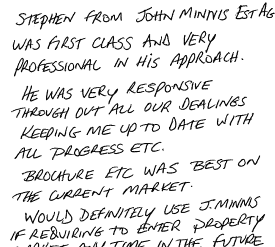 STEPHEN FROM JOHN MINNIS EST AG
WAS FIRST CLASS AND VERY
PROFESSIONAL IN HIS APPROACH.
HE WAS VERY RESPONSIVE
THROUGH OUT ALL OUR DEALINGS
KEEPING ME UP TO DATE WITH
ALL PROGRESS ETC.
BROCHURE ETC WAS BEST ON
THE CURRENT MARKET.
WOULD DEFINITELY USE J.MINNIS
IF REQUIRING TO ENTER PROPERTY
MARKET ANY TIME IN THE FUTURE